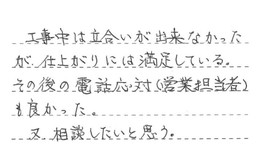 工事中は立合いが出来なかった
が、仕上がりには満足している。
その後の電話応対(営業担当者)
も良かった。
又、相談したいと思う。